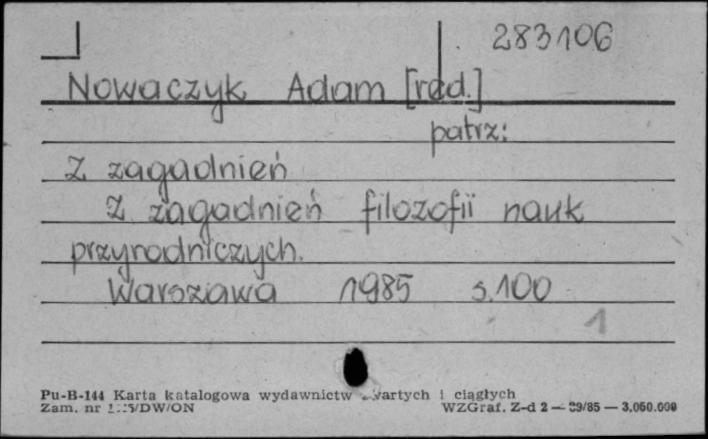 283106
Nowaczyk Adam [red.]
patrz:
Z zagadnień
Z zagadnień filozofii nauk
przyrodniczych.
Warszawa 1985 s.100
1
Pu-B-144 Karta katalogowa wydawnictw i ciągłych
Zam. nr WZGraf. Z-d 2 — 29/85 — 3,060.000